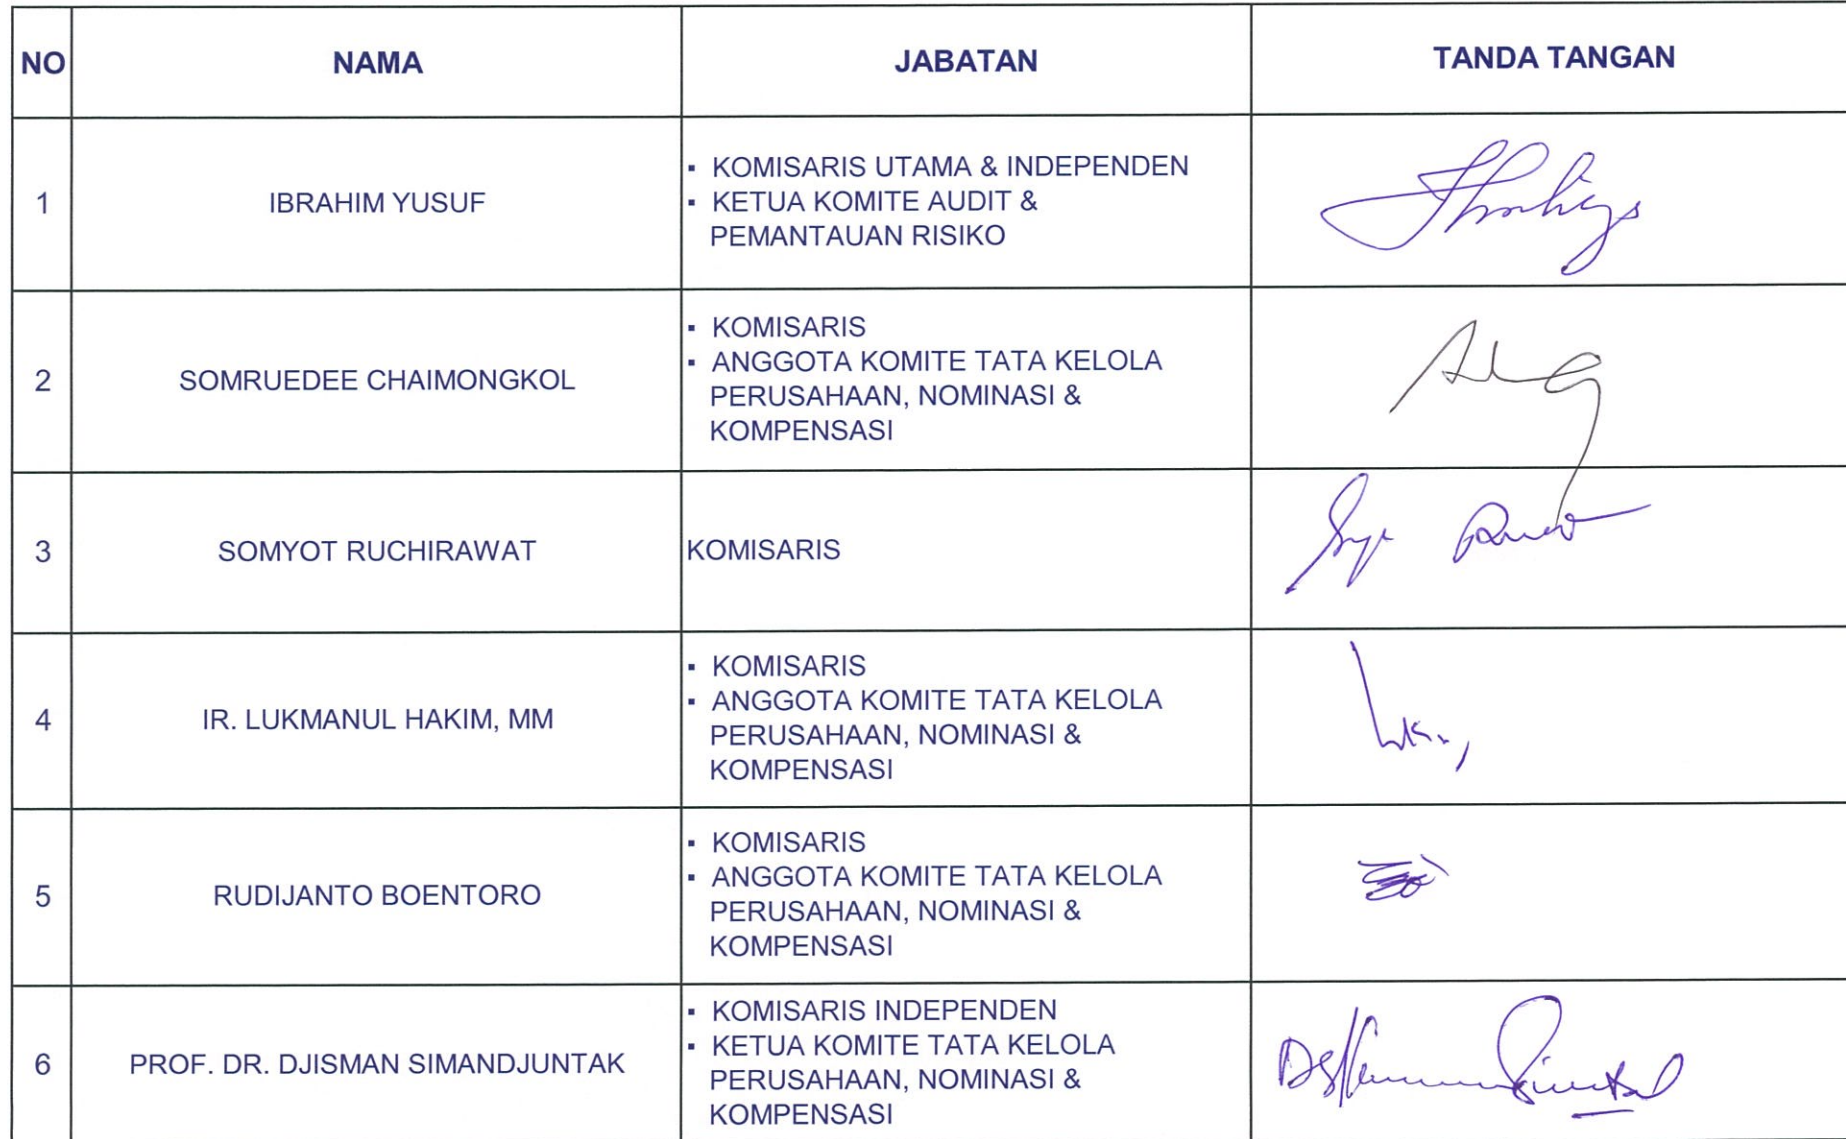 NO NAMA JABATAN TANDA TANGAN
1 IBRAHIM YUSUF
▪ KOMISARIS UTAMA & INDEPENDEN
▪ KETUA KOMITE AUDIT &
PEMANTAUAN RISIKO
2 SOMRUEDEE CHAIMONGKOL
▪ KOMISARIS
▪ ANGGOTA KOMITE TATA KELOLA
PERUSAHAAN, NOMINASI &
KOMPENSASI
3 SOMYOT RUCHIRAWAT KOMISARIS
4 IR. LUKMANUL HAKIM, MM
▪ KOMISARIS
▪ ANGGOTA KOMITE TATA KELOLA
PERUSAHAAN, NOMINASI &
KOMPENSASI
5 RUDIJANTO BOENTORO
▪ KOMISARIS
▪ ANGGOTA KOMITE TATA KELOLA
PERUSAHAAN, NOMINASI &
KOMPENSASI
6 PROF. DR. DJISMAN SIMANDJUNTAK
▪ KOMISARIS INDEPENDEN
▪ KETUA KOMITE TATA KELOLA
PERUSAHAAN, NOMINASI &
KOMPENSASI